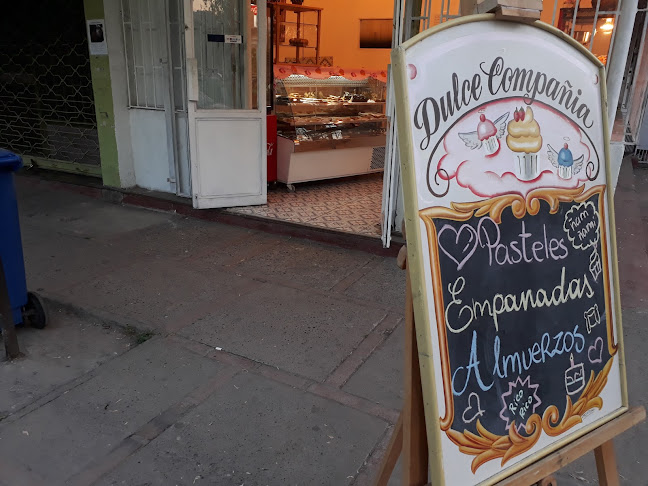 Dulce Compañia
Ñam
Ñam!
Pasteles
Empanadas
Almuerzos
Rico
Rico